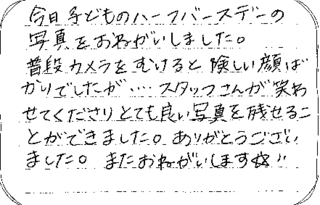 今日子どものハーフバースデーの
写真をおねがいしました。
普段カメラをむけると険しい顔ば
かりでしたが…スタッフさんが笑わ
せてくださりとても良い写真を残せるこ
とができました。ありがとうござい
ました。またおねがいします☆!!